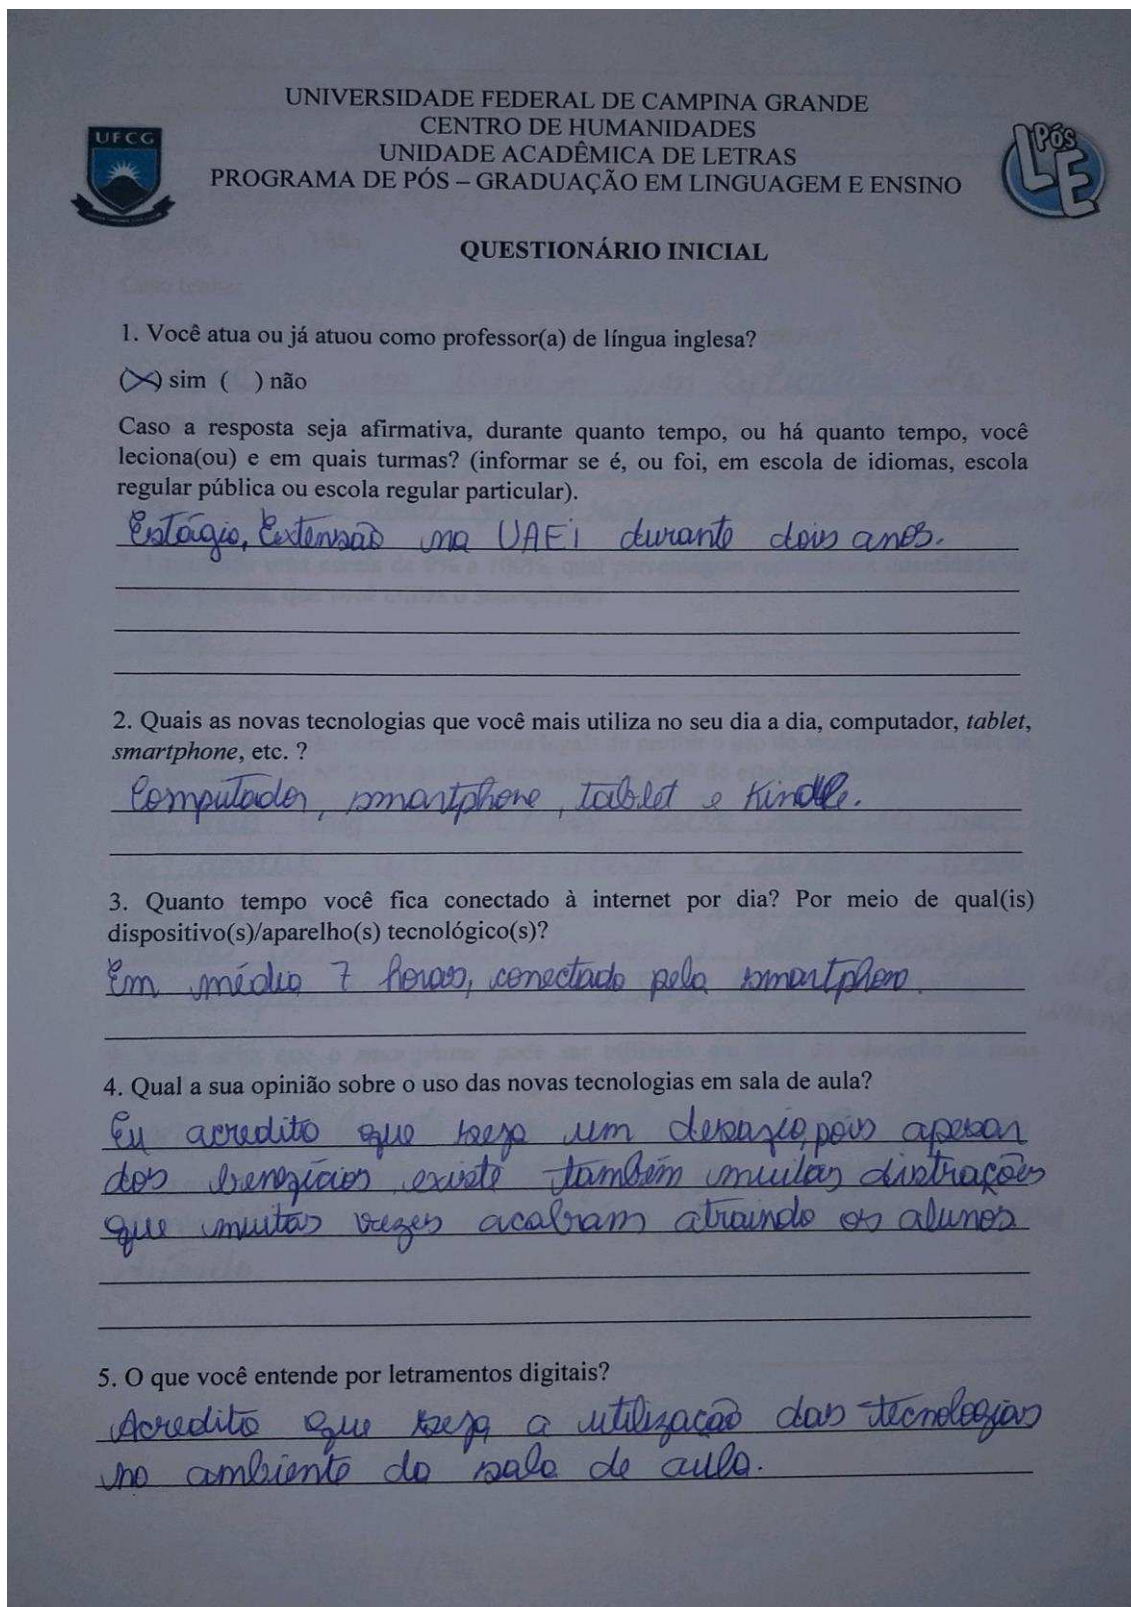 UNIVERSIDADE FEDERAL DE CAMPINA GRANDE
CENTRO DE HUMANIDADES
UNIDADE ACADÊMICA DE LETRAS
PROGRAMA DE PÓS – GRADUAÇÃO EM LINGUAGEM E ENSINO
UFCG
PÓS
LE
QUESTIONÁRIO INICIAL
1. Você atua ou já atuou como professor(a) de língua inglesa?
(X) sim ( ) não
Caso a resposta seja afirmativa, durante quanto tempo, ou há quanto tempo, você
leciona(ou) e em quais turmas? (informar se é, ou foi, em escola de idiomas, escola
regular pública ou escola regular particular).
Estágio, Extensão na UAEi durante dois anos.
2. Quais as novas tecnologias que você mais utiliza no seu dia a dia, computador, tablet,
smartphone, etc. ?
Computador, smartphone, tablet e Kindle.
3. Quanto tempo você fica conectado à internet por dia? Por meio de qual(is)
dispositivo(s)/aparelho(s) tecnológico(s)?
Em média 7 horas, conectado pelo smartphon.
4. Qual a sua opinião sobre o uso das novas tecnologias em sala de aula?
Eu acredito que seja um desafio, pois apesar
dos benefícios existe também muitas distrações
que muitas vezes acabam atraindo os alunos
5. O que você entende por letramentos digitais?
Acredito que seja a utilização das tecnologias
no ambiente da sala de aula.